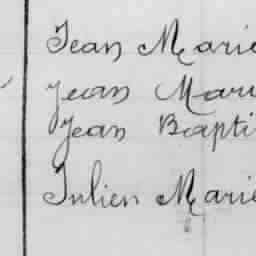 Jean Marie
Jean Mari
Jean Bapti
Julien Marie